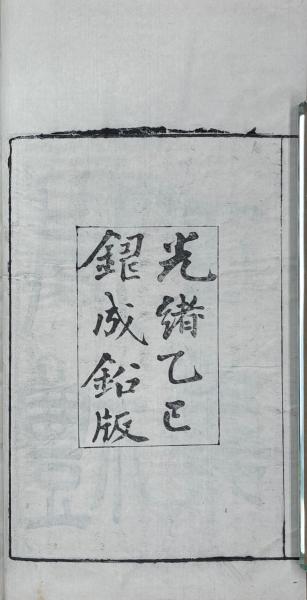 光緒乙巳
鋥成鉛版